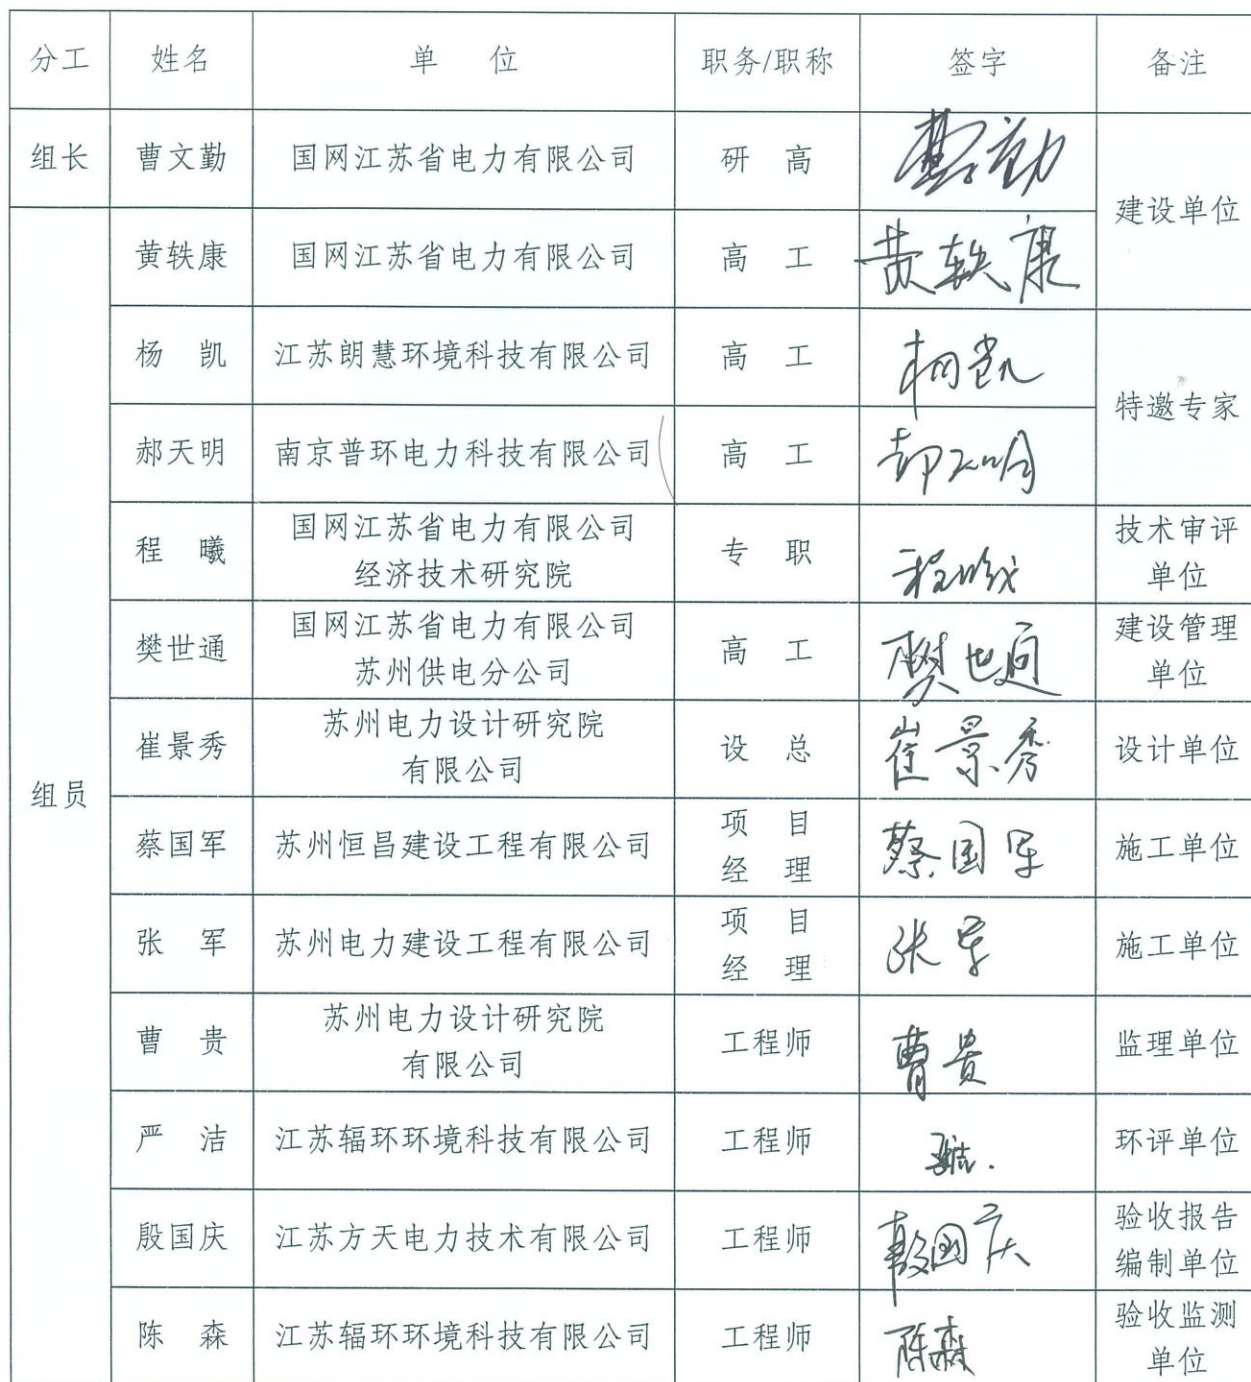 分工 姓名 单 位 职务/职称 签字 备注
组长 曹文勤 国网江苏省电力有限公司 研 高 建设单位
组员
黄轶康 国网江苏省电力有限公司 高 工 黄轶康
杨 凯 江苏朗慧环境科技有限公司 高 工 杨凯 特邀专家
郝天明 南京普环电力科技有限公司 高 工 郝天明
程 曦 国网江苏省电力有限公司
经济技术研究院 专 职 程曦 技术审评
单位
樊世通 国网江苏省电力有限公司
苏州供电分公司 高 工 樊世通 建设管理
单位
崔景秀 苏州电力设计研究院
有限公司 设 总 崔景秀 设计单位
蔡国军 苏州恒昌建设工程有限公司 项 目
经 理 蔡国军 施工单位
张 军 苏州电力建设工程有限公司 项 目
经 理 张军 施工单位
曹 贵 苏州电力设计研究院
有限公司 工程师 曹贵 监理单位
严 洁 江苏辐环环境科技有限公司 工程师 环评单位
殷国庆 江苏方天电力技术有限公司 工程师 殷国庆 验收报告
编制单位
陈 森 江苏辐环环境科技有限公司 工程师 陈森 验收监测
单位